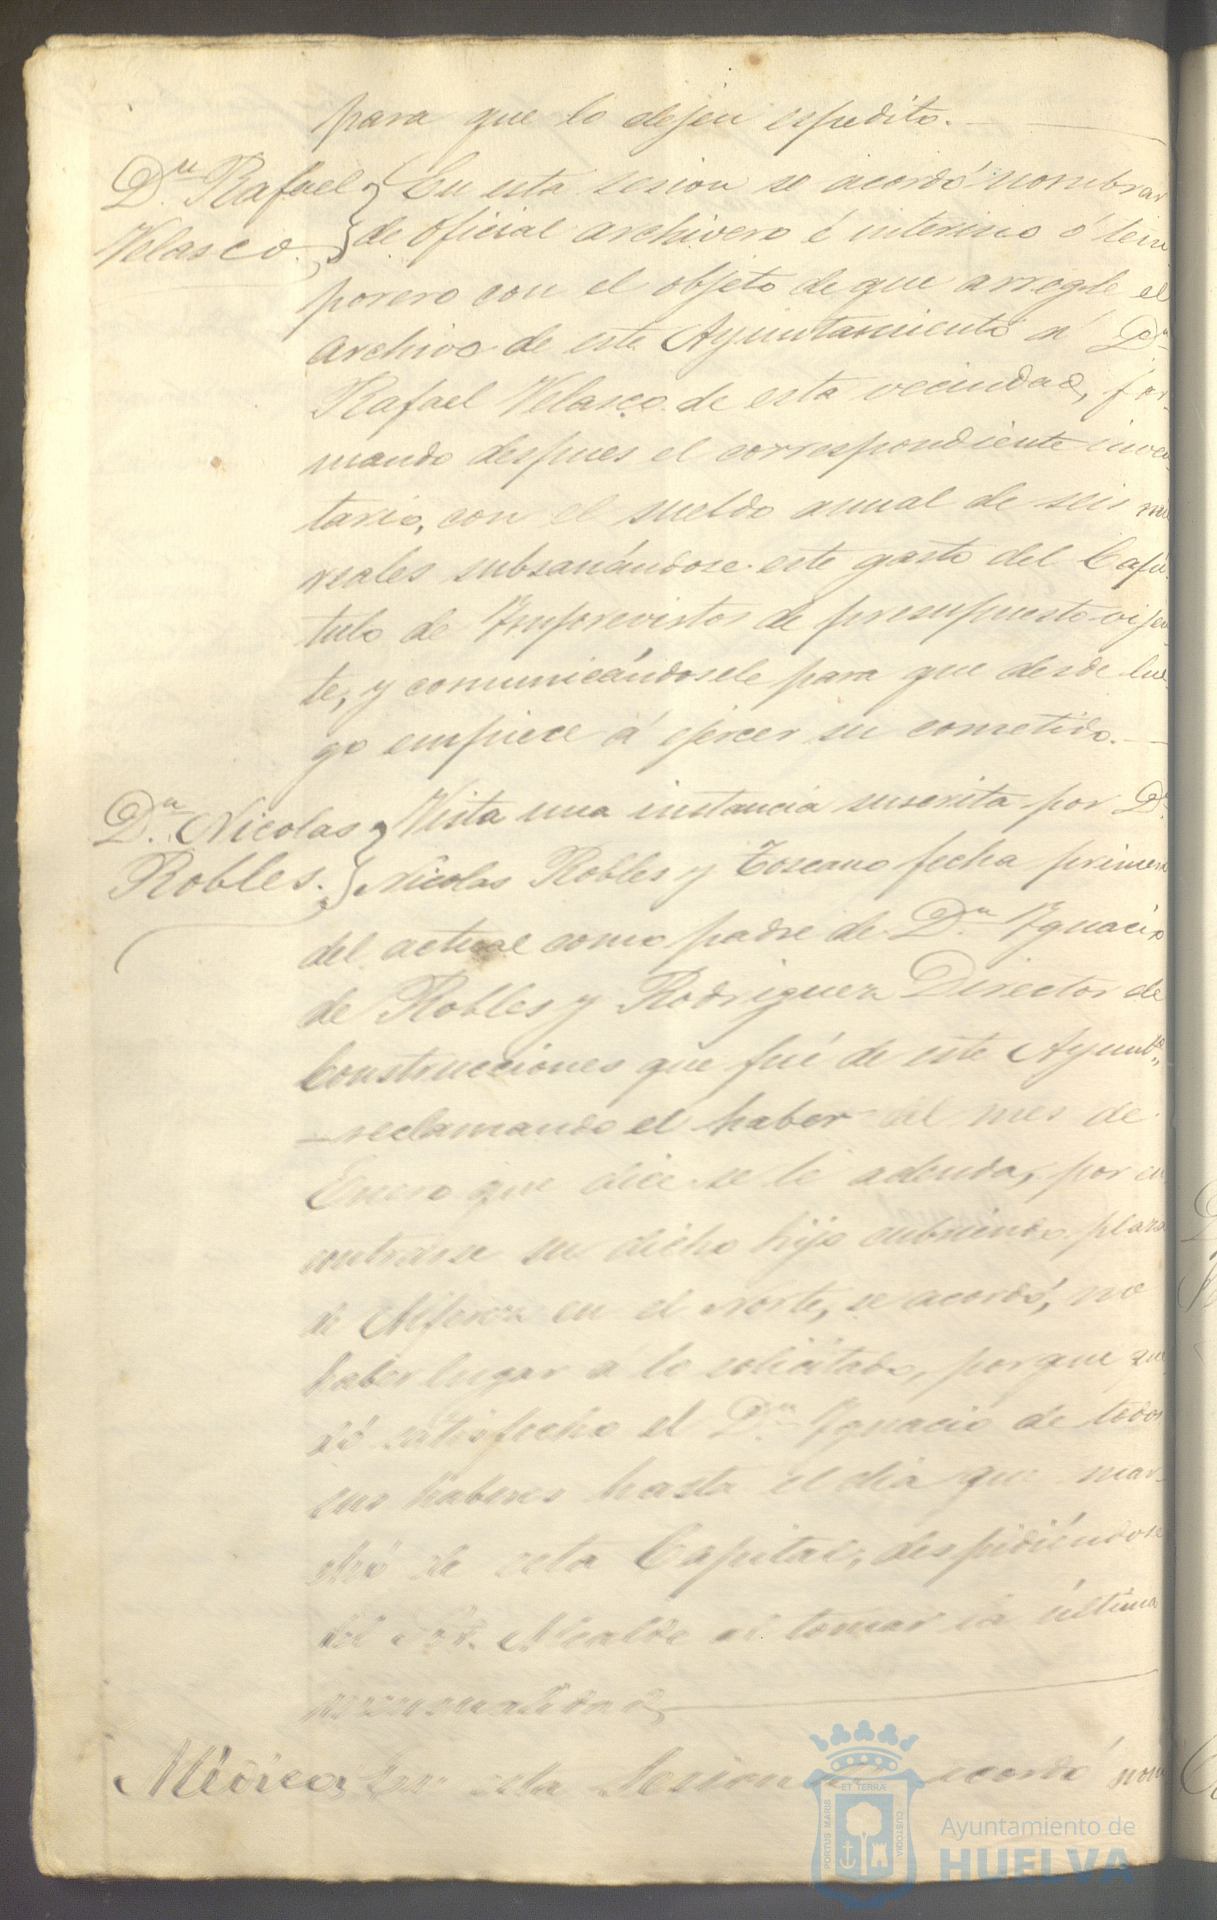 para que lo dejen espedito.
Dn. Rafael Velasco.
En esta sesion se acordó nombrar
de oficial archivero é interino ó tem
porero con el objeto de que arregle el
archivo de este Ayuntamiento á Dn.
Rafael Velasco de esta vecindad, for-
mando despues el correspondiente inven
tario, con el sueldo anual de seis mil
reales subsanándose este gasto del Capí-
tulo de Imprevistos de presupuesto vijen
te, y comunicándosele para que desde lue-
go empiece á ejercer su cometido.
Dn. Nicolas Robles.
Vista una instancia suscrita por Dn.
Nicolas Robles y Toscano fecha primero
del actual como padre de Dn. Ignacio
de Robles y Rodriguez Director de
Construcciones que fué de este Ayuntº.
reclamando el haber del mes de
Enero que dice se le adeuda, por en
contrarse su dicho hijo cubriendo plaza
de Alferez en el Norte, se acordó, no
haber lugar a lo solicitado, porque que
dó satisfecho el Dn. Ignacio de todos
sus haberes hasta el dia que mar-
chó de esta Capital, despidiéndose
del Sor. Alcalde al tomar la última
mensualidad
Médico
En esta Sesion se acordó nom
ET TERRÆ
PORTUS MARIS
CUSTODIA
Ayuntamiento de
HUELVA